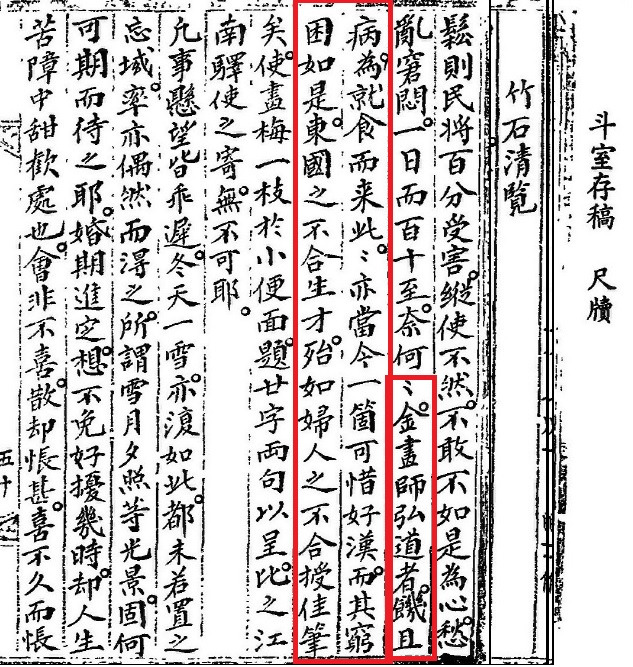 斗室存稿 尺牘
竹石清覽
鬆則民將百分受害。縱使不然。不敢不如是為心。愁
亂窘悶。一日而百十至。奈何〻。金畫師弘道者。饑且
病。為就食而来此。〻亦當今一箇可惜好漢。而其窮
困如是。東國之不合生才。殆如婦人之不合授佳筆
矣。使畫梅一枝於小便面。題廿字兩句以呈。比之江
南驛使之寄。無不可耶。
凢事懸望皆乖遲。冬天一雪。亦復如此。都未若置之
忘域。率亦偶然而淂之。所謂雪月夕照等光景。固何
可期而待之耶。婚期進定。想不免好擾幾時。却人生
苦障中甜歡處也。會非不喜。散却悵甚。喜不久而悵
五十